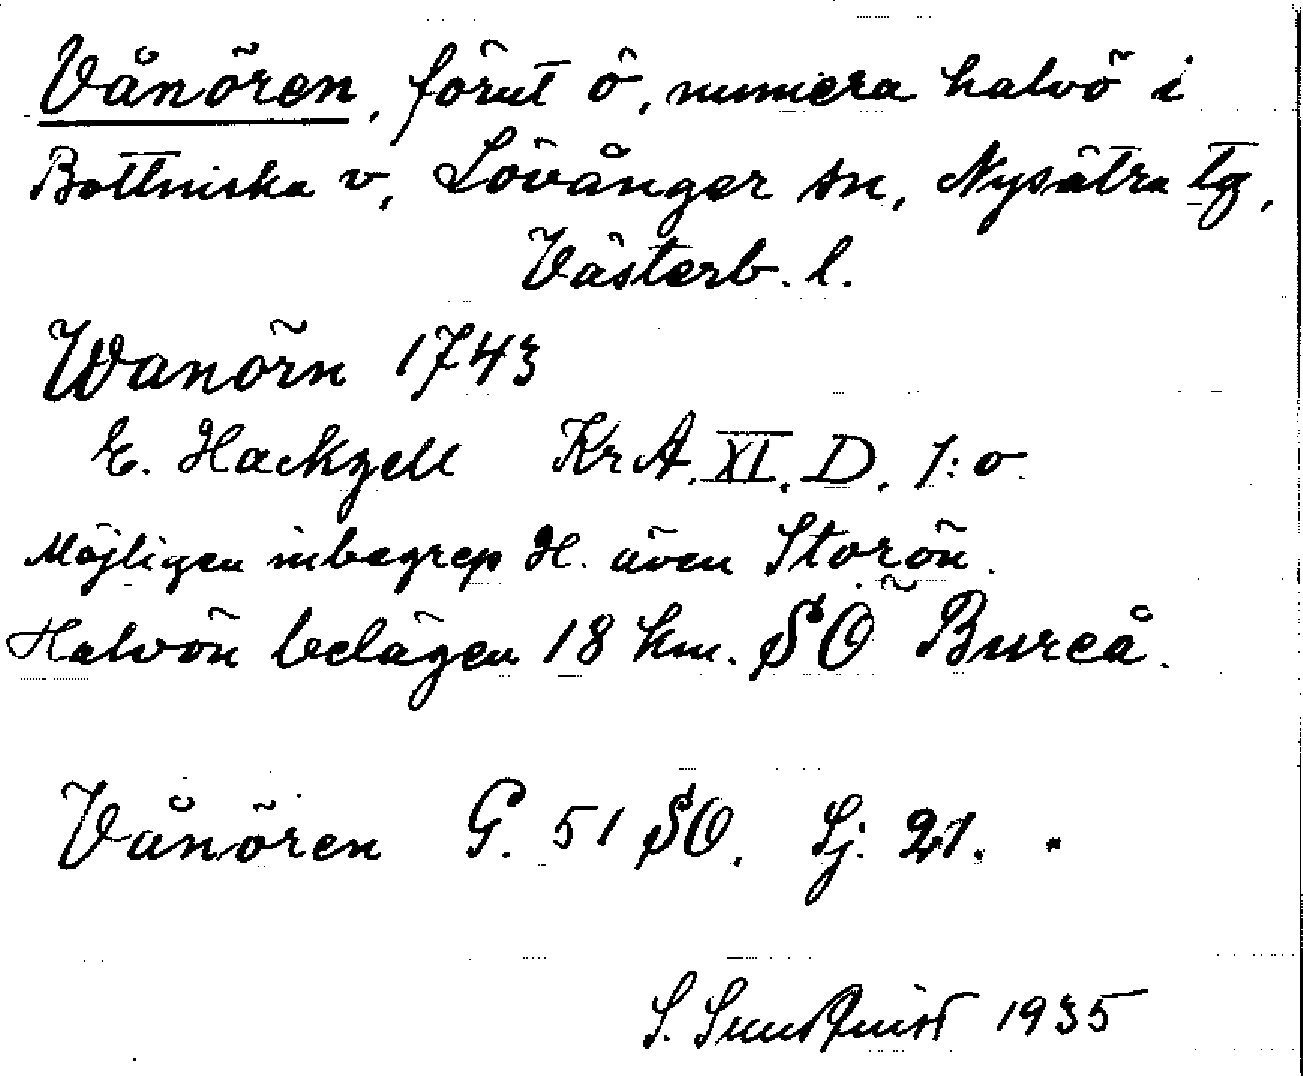 Vånören, förut ö, numera halvö i
Bottniska v, Lövånger sn, Nysätra tg,
Västerb. l.
Wanörn 1743
E. Hackzell KrA. XI. D. 1:o
Möjligen inbegrep H. även Storön.
Halvön belägen 18 km. SÖ Bureå.
Vånören G. 51 SO. Sj: 21.
S. Sundquist 1935